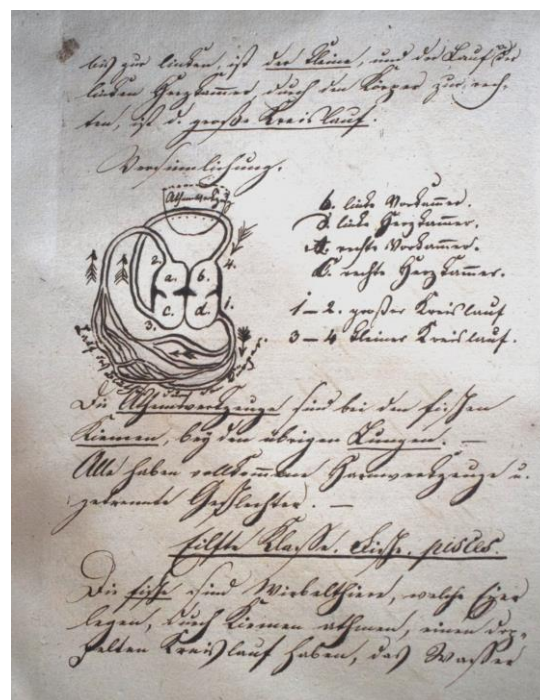 bis zur linken, ist der kleine, und der Lauf der
linken Herzkammer durch den Körper zur rech-
ten, ist d. große Kreislauf.
Versinnlichung.
b. linke Vorkammer.
d. linke Herzkammer.
a. rechte Vorkammer.
c. rechte Herzkammer.
1–2. großer Kreislauf
3–4 kleiner Kreislauf.
2.
4.
a.
b.
c.
d.
1.
3.
Die Athemwerkzeuge sind bei den fischen
Kiemen, bey den übrigen Lungen. —
Alle haben vollkommene Harnwerkzeuge u.
getrennte Geschlechter. —
Eilfte Klasse. Fische. pisces.
Die fische sind Wirbelthiere, welche Eyer
legen, durch Kiemen athmen, einen dop-
pelten Kreislauf haben, das Wasser